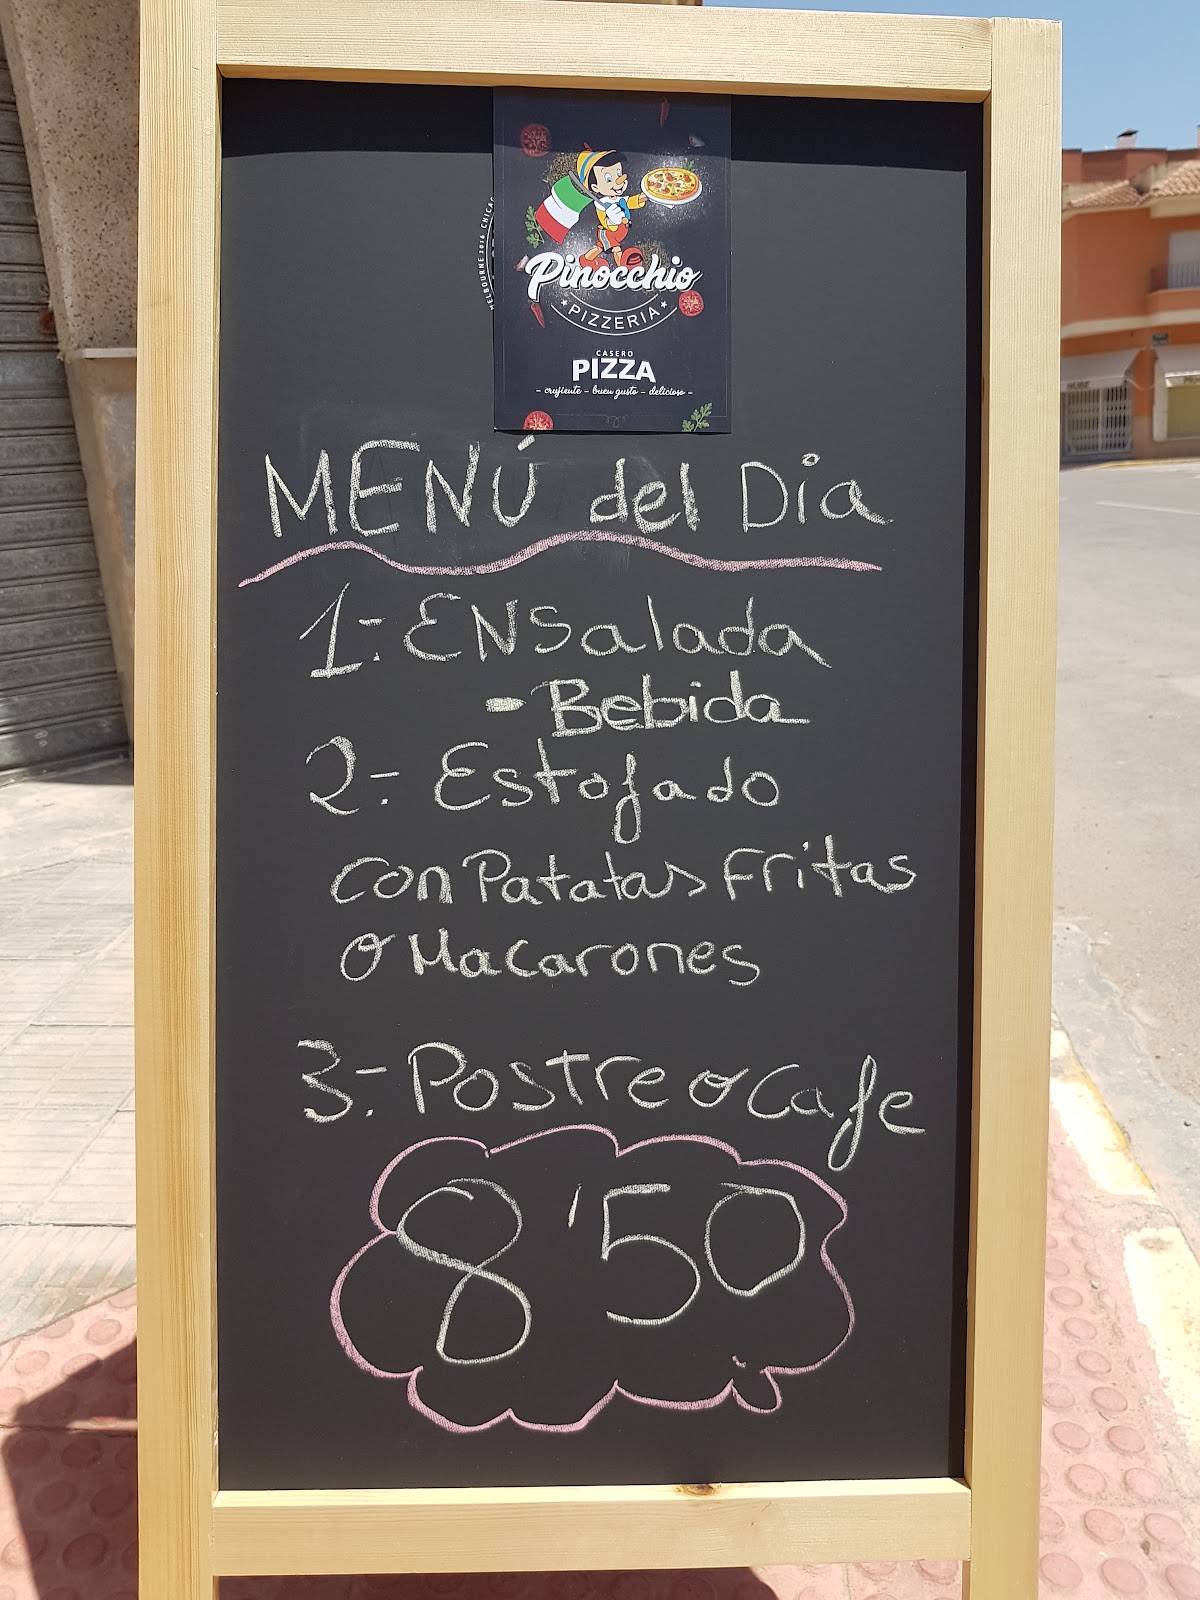 MELBOURNE 2016 CHICAG
Pinocchio
PIZZERIA
CASERO
PIZZA
- crujiente - buen gusto - delicioso -
MENÚ del Dia
1-: ENSalada
- Bebida
2-: Estofado
con Patatas Fritas
o Macarones
3-: Postre o Cafe
8'50